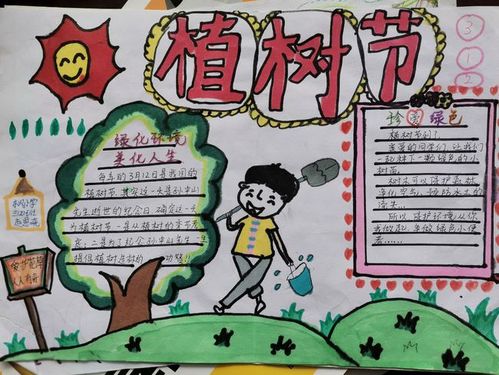 植树节
③
①
②
绿化环境
美化人生
每年的3月12日是我们的
植树节,其实这一天是孙中山
先生逝世的纪念日,确定这一天
为植树节一是从植树的季节考
虑;二是为了纪念孙中山先生
提倡植树造林的功绩!
珍爱绿色
植树节到了,
亲爱的同学们,让我们
一起种下一颗绿色的小
树苗。
树木可以保护森林,
净化空气,防防水土的
流失……
所以,保护环境从你
我做起,争做绿色小使
者……
爱护花草
人人有责